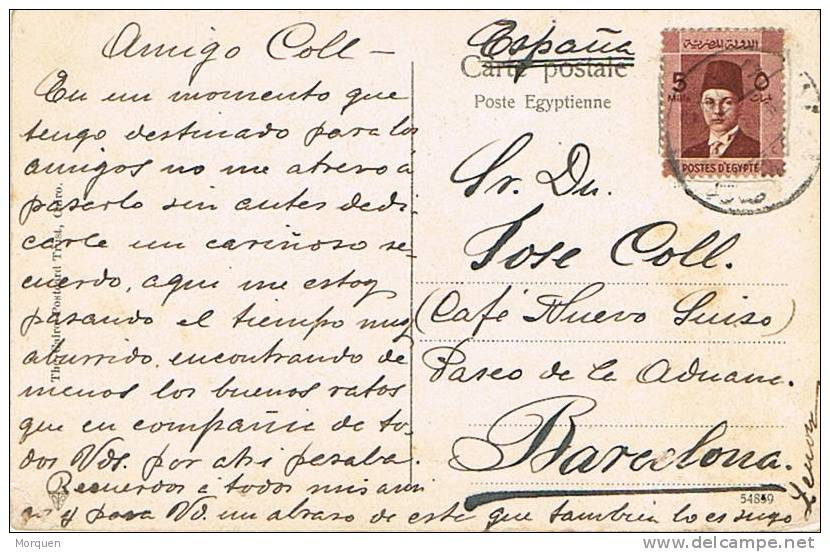 Amigo Coll -
En un momento que
tengo destinado para los
amigos no me atrevo a
pasarlo sin antes dedi
carle un cariñoso re-
cuerdo, aqui me estoy
pasando el tiempo muy
aburrido, encontrando de
menos los buenos ratos
que en compañia de to-
dos Vds. por ahi pasaba.
Recuerdos a todos mis ami
gos y para Vd. un abrazo de este que tambien lo es suyo
The Cairo Postcard Trust, Cairo.
España
Carte postale
Poste Egyptienne
الدولة المصرية
5
Mills
٥
مليمات
POSTES D'EGYPTE
Sr. Dn.
Jose Coll.
(Café Nuevo Suiso)
Paseo de la Aduana.
Barcelona.
54859
Morquen
www.delcampe.net